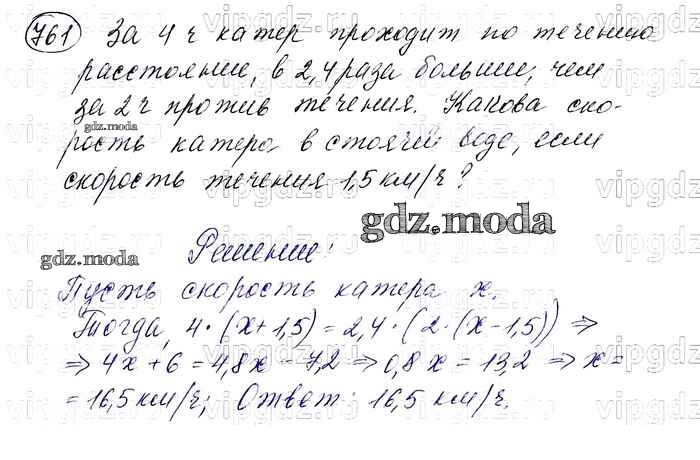 761 За 4 ч катер проходит по течению
расстояние, в 2,4 раза больше, чем
за 2 ч против течения. Какова ско-
gdz.moda
рость катера в стоячей воде, если
скорость течения 1,5 км/ч?
gdz.moda
gdz.moda
Решение:
Пусть скорость катера x.
Тогда, 4·(x+1,5) = 2,4·(2·(x-1,5)) ⇒
⇒ 4x+6 = 4,8x - 7,2 ⇒ 0,8x = 13,2 ⇒ x =
= 16,5 км/ч; Ответ: 16,5 км/ч.